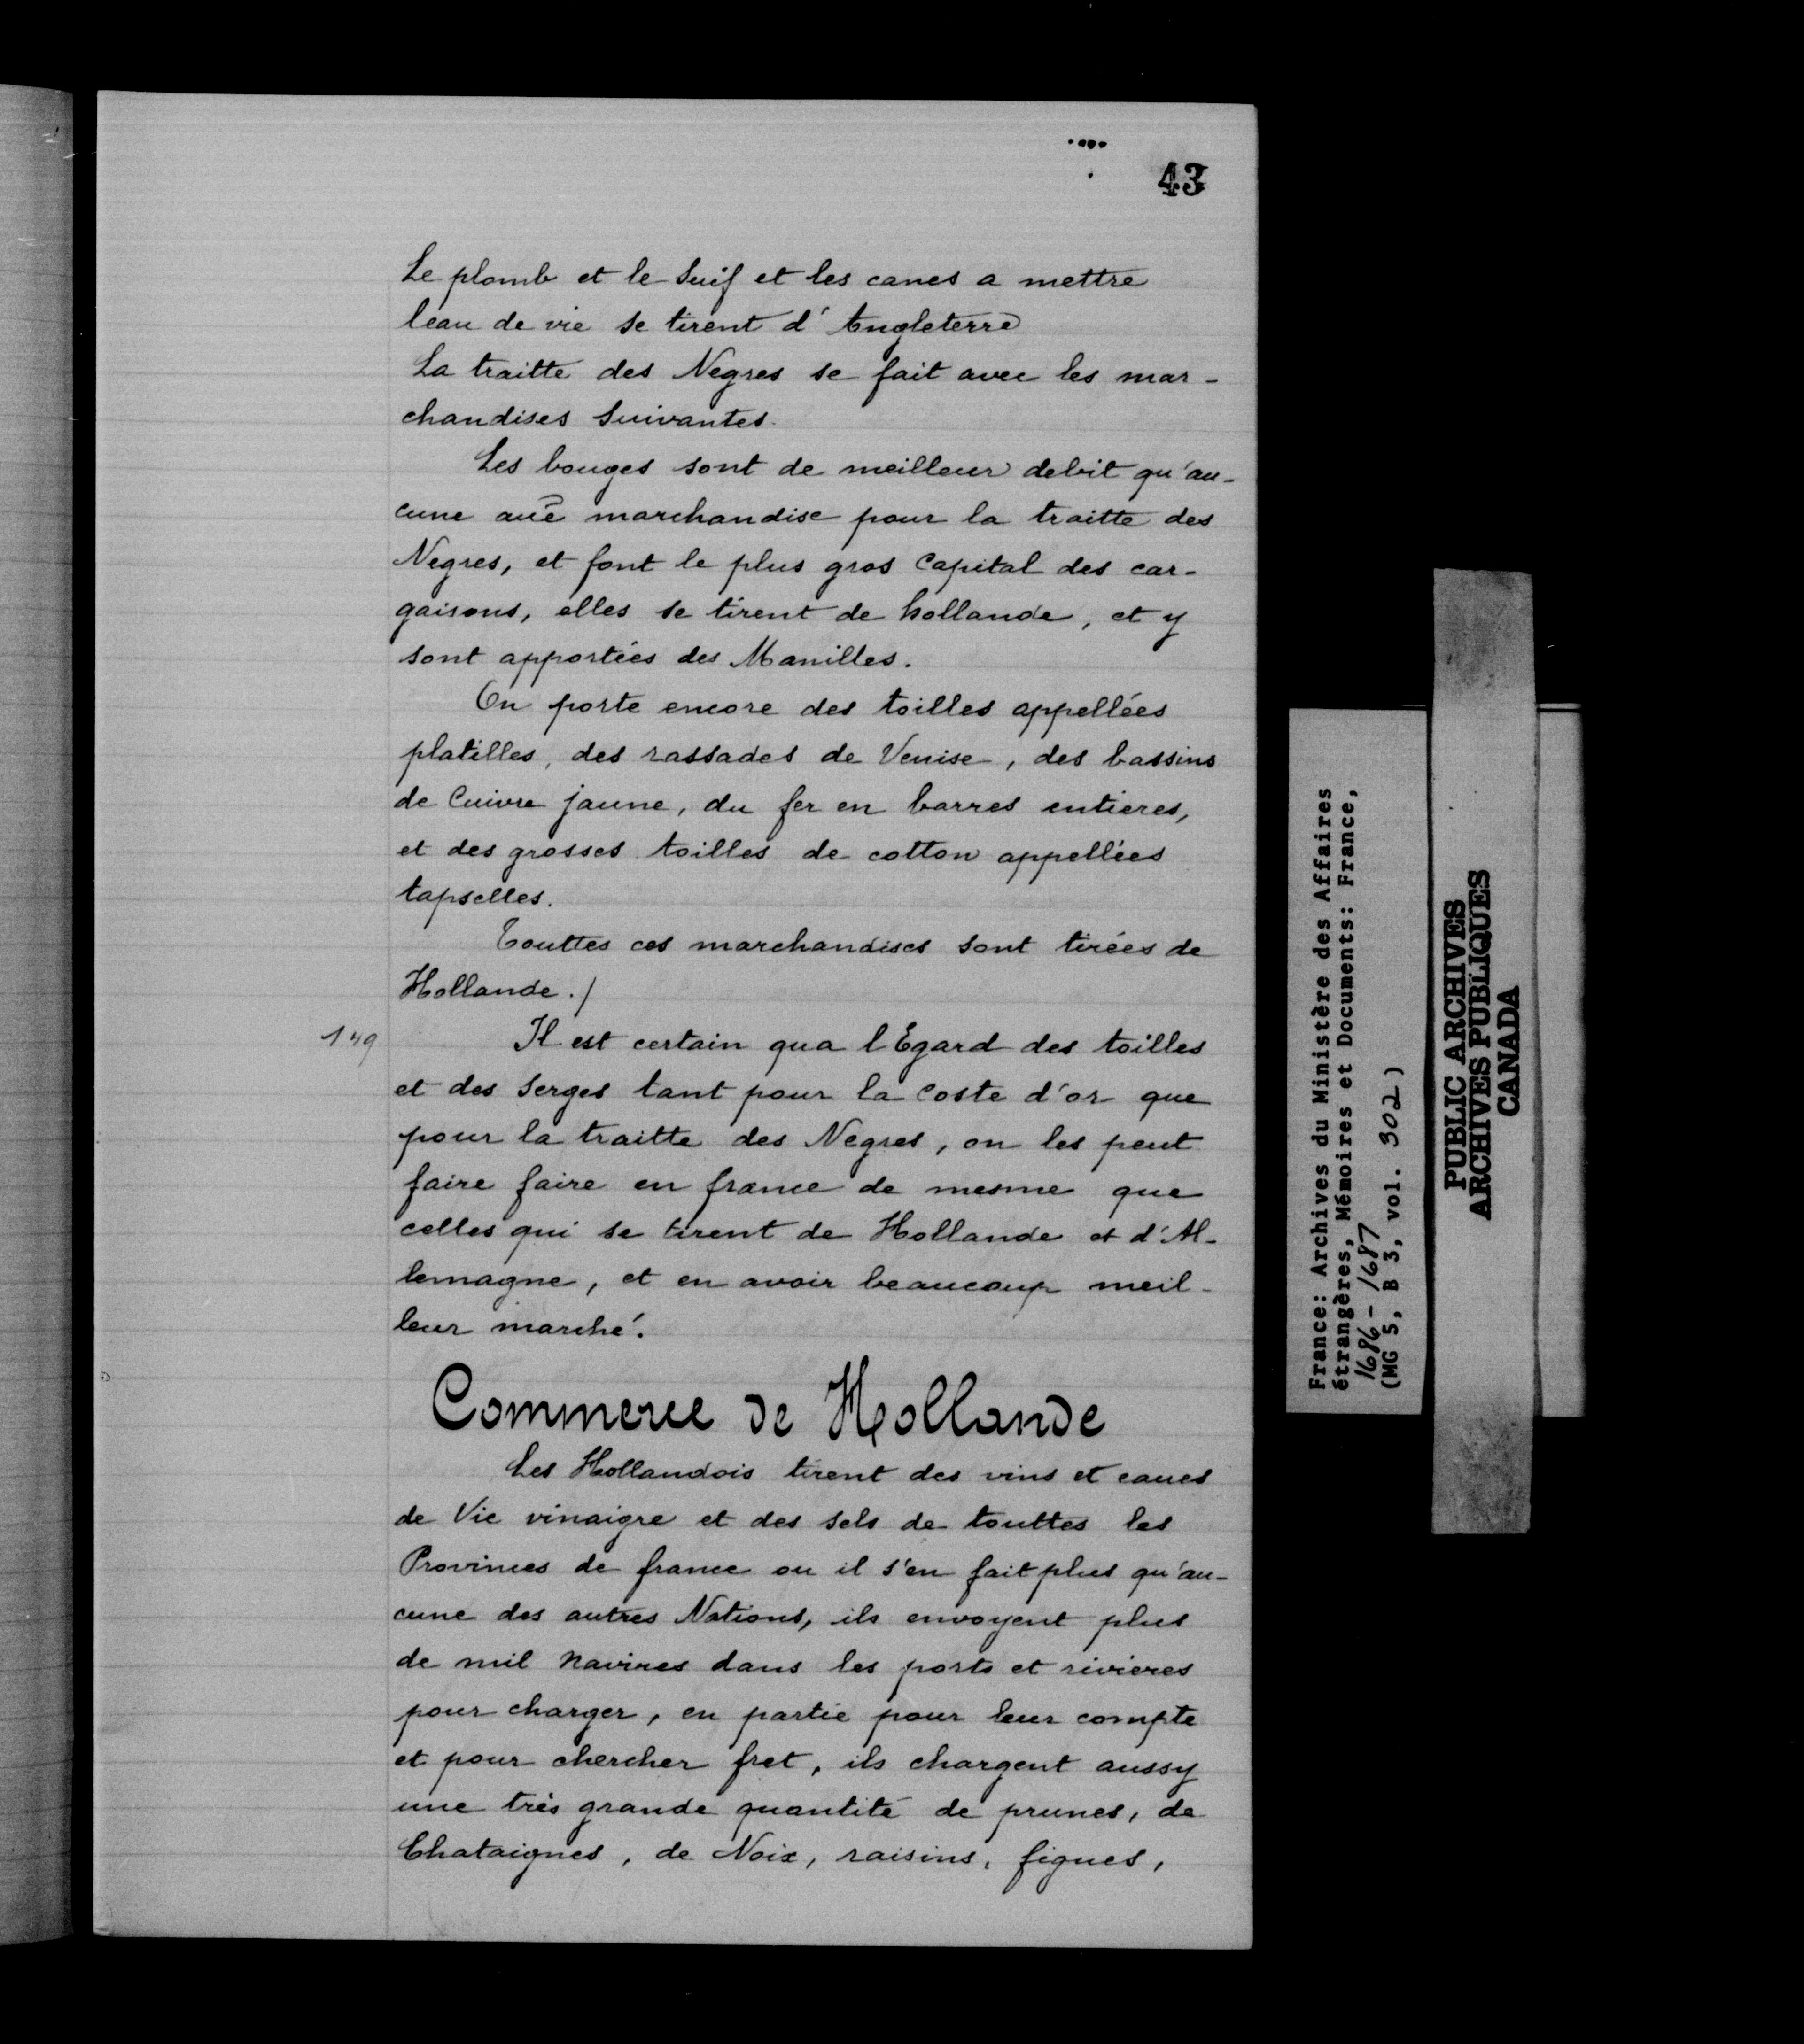 43
Le plomb et le Suif et les canes a mettre
leau de vie se tirent d'Angleterre
La traitte des Negres se fait avec les mar-
chandises Suivantes.
Les bouges sont de meilleur debit qu'au-
cune aũe marchandise pour la traitte des
Negres, et font le plus gros Capital des car-
gaisons, elles se tirent de hollande, et y
sont apportées des Manilles.
On porte encore des toilles appellées
platilles, des rassades de Venise, des bassins
de Cuivre jaune, du fer en barres entieres,
et des grosses toilles de cotton appellées
tapselles.
Touttes ces marchandises sont tirées de
Hollande./
149
Il est certain qua l'Egard des toilles
et des Serges tant pour la Coste d'or que
pour la traitte des Negres, on les peut
faire faire en france de mesme que
celles qui se tirent de Hollande et d'Al-
lemagne, et en avoir beaucoup meil-
leur marché.
Commerce de Hollande
Les Hollandois tirent des vins et eaues
de Vie vinaigre et des sels de touttes les
Provinces de france ou il s'en fait plus qu'au-
cune des autres Nations, ils envoyent plus
de mil Navires dans les ports et rivieres
pour charger, en partie pour leur compte
et pour chercher fret, ils chargent aussy
une très grande quantité de prunes, de
Chataignes, de Noix, raisins, figues,
France: Archives du Ministère des Affaires
étrangères, Mémoires et Documents: France,
1686-1687
(MG 5, B 3, vol. 302)
PUBLIC ARCHIVES
ARCHIVES PUBLIQUES
CANADA